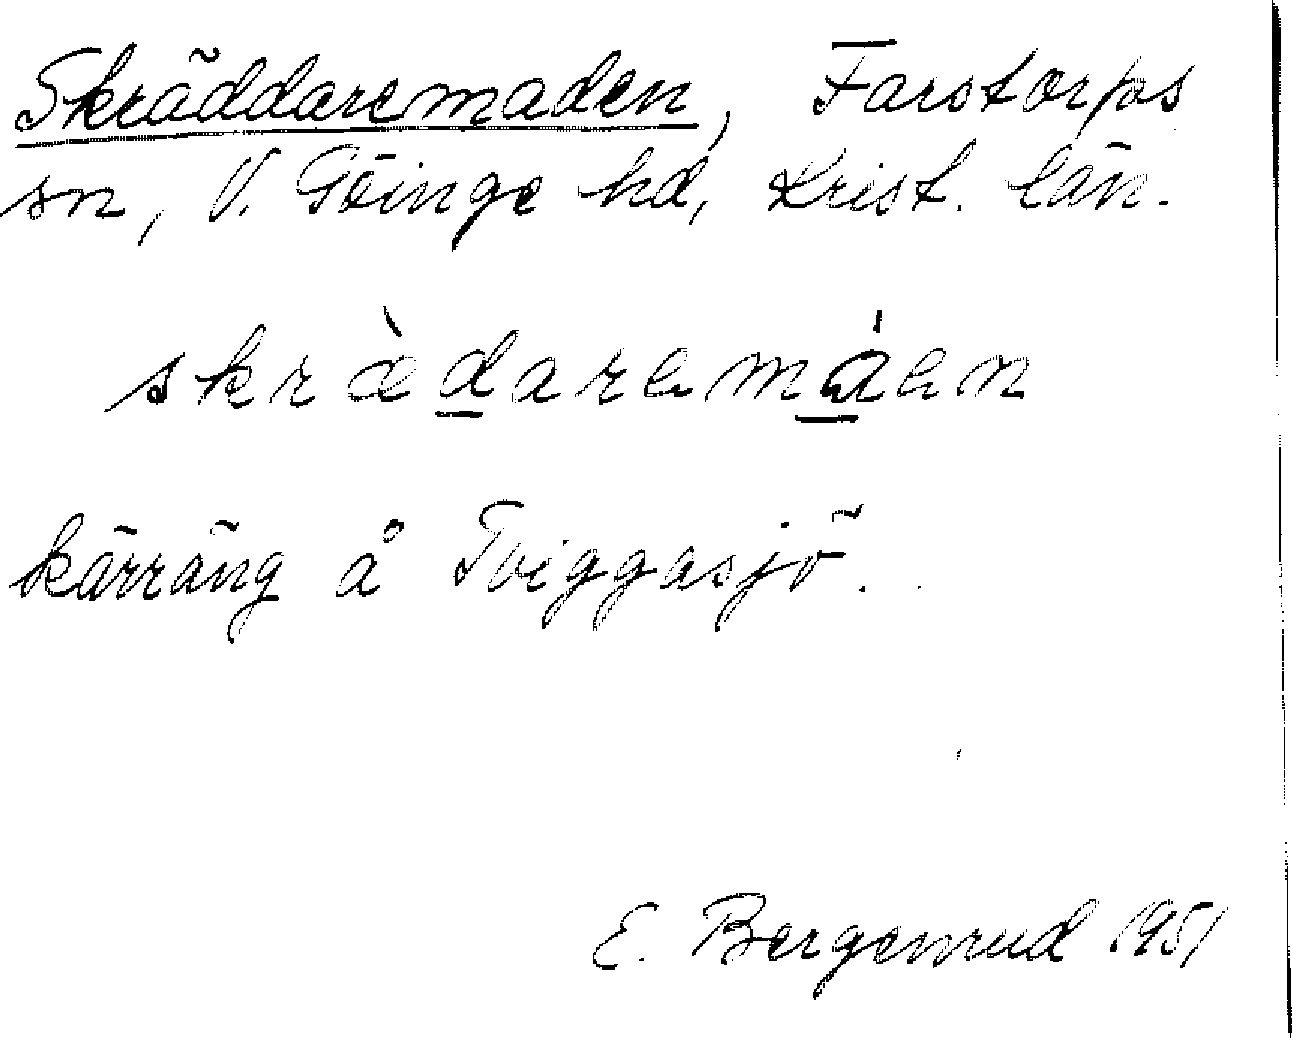 Skräddaremaden, Farstorps
sn, V. Göinge hd, Krist. län.
skræ̀daremáen
kärräng å Tviggasjö.
E. Bergenrud 1951